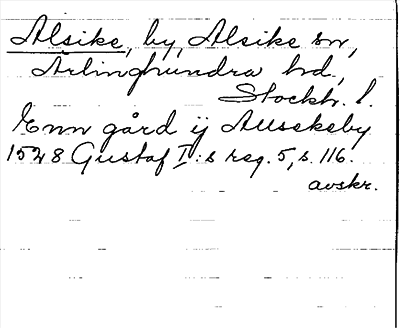 Alsike, by, Alsike sn,
Ärlinghundra hd.,
Stockh. l.
Enn gård ij Allsekeby
1528 Gustaf I:s reg. 5, s. 116.
avskr.